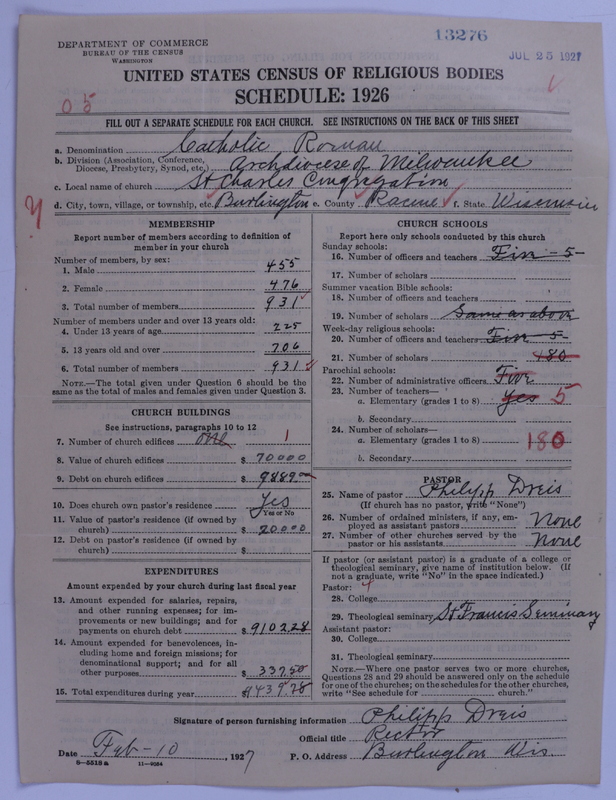 13276
JUL 25 1927
DEPARTMENT OF COMMERCE
BUREAU OF THE CENSUS
WASHINGTON
UNITED STATES CENSUS OF RELIGIOUS BODIES
SCHEDULE: 1926
05
FILL OUT A SEPARATE SCHEDULE FOR EACH CHURCH. SEE INSTRUCTIONS ON THE BACK OF THIS SHEET
a. Denomination Catholic Roman
b. Division (Association, Conference, Diocese, Presbytery, Synod, etc.) Archdiocese of Milwaukee
c. Local name of church St Charles Congregation
d. City, town, village, or township, etc. Burlington e. County Racine f. State Wisconsin
MEMBERSHIP
Report number of members according to definition of member in your church
Number of members, by sex:
1. Male 455
2. Female 476
3. Total number of members 931
Number of members under and over 13 years old:
4. Under 13 years of age 225
5. 13 years old and over 706
6. Total number of members 931
NOTE.—The total given under Question 6 should be the same as the total of males and females given under Question 3.
CHURCH BUILDINGS
See instructions, paragraphs 10 to 12
7. Number of church edifices one 1
8. Value of church edifices $ 70000
9. Debt on church edifices $ 9889
10. Does church own pastor's residence Yes
Yes or No
11. Value of pastor's residence (if owned by church) $ 20000
12. Debt on pastor's residence (if owned by church) $
EXPENDITURES
Amount expended by your church during last fiscal year
13. Amount expended for salaries, repairs, and other running expenses; for improvements or new buildings; and for payments on church debt $ 910228
14. Amount expended for benevolences, including home and foreign missions; for denominational support; and for all other purposes $ 33750
15. Total expenditures during year $ 9439.78
CHURCH SCHOOLS
Report here only schools conducted by this church
Sunday schools:
16. Number of officers and teachers Five - 5-
17. Number of scholars
Summer vacation Bible schools:
18. Number of officers and teachers
19. Number of scholars Same as above
Week-day religious schools:
20. Number of officers and teachers Five 5-
21. Number of scholars 180
Parochial schools:
22. Number of administrative officers Five
23. Number of teachers—
a. Elementary (grades 1 to 8) Yes 5
b. Secondary
24. Number of scholars—
a. Elementary (grades 1 to 8) 180
b. Secondary
PASTOR
25. Name of pastor Philipp Dreis
(If church has no pastor, write "None")
26. Number of ordained ministers, if any, employed as assistant pastors None
27. Number of other churches served by the pastor or his assistants None
If pastor (or assistant pastor) is a graduate of a college or theological seminary, give name of institution below. (If not a graduate, write "No" in the space indicated.)
Pastor:
28. College
29. Theological seminary St Francis Seminary
Assistant pastor:
30. College
31. Theological seminary
NOTE.—Where one pastor serves two or more churches, Questions 28 and 29 should be answered only on the schedule for one of the churches; on the schedules for the other churches, write "See schedule for church."
Signature of person furnishing information Philipp Dreis
Official title Rector
Date Feb - 10, 1927 P. O. Address Burlington Wis.
8-5518a 11-9084